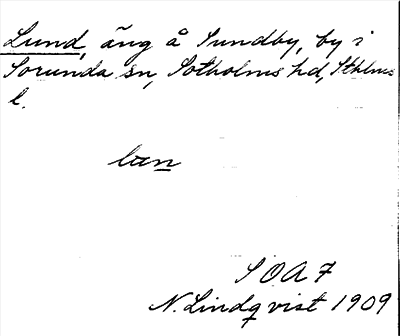 Lund, äng å Sundby, by i
Sorunda sn, Sotholms hd, Sthlms
l.
SOA 7
N. Lindqvist 1909